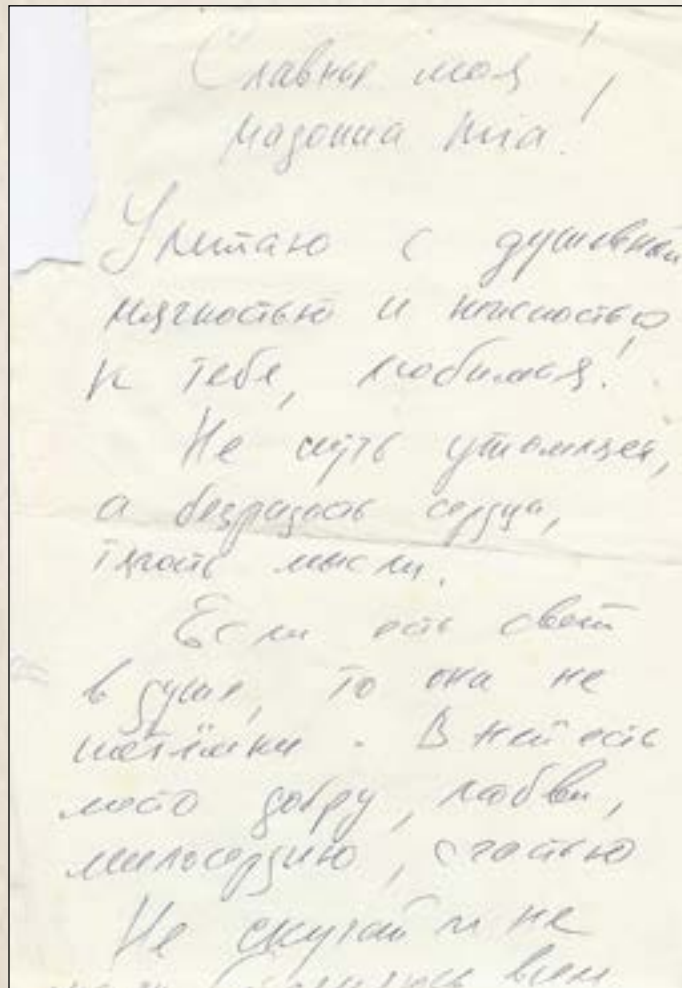 Славная моя!,
мадонна mia!
Улетаю с душевной
мягкостью и нежностью
к тебе, любимая!
Не путь утомляет,
а безрадость сердца,
тяготь мысли.
Если есть свет
в душе, то она не
потёмки. В ней есть
место добру, любви,
милосердию, счастью
Не скучай и не
всем